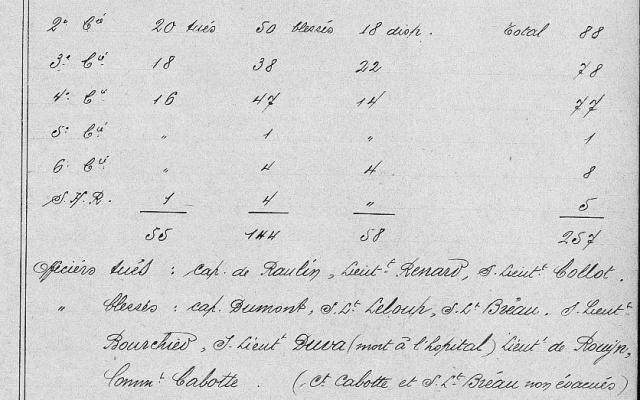 2e Cie 20 tués 50 blessés 18 disp. Total 88
3e Cie 18 38 22 78
4e Cie 16 47 14 77
5e Cie " 1 " 1
6e Cie " 4 4 8
S.H.R. 1 4 " 5
55 144 58 257
Officiers tués : cap. de Raulin, Lieutt Renard, S. Lieutt Collot.
" blessés : cap. Dumont, S. Lt Leloup, S. Lt Bréau. S. Lieutt
Bourchied, S. Lieutt Duva (mort à l'hopital) Lieutt de Rouyn,
Commt Cabotte. (Ct Cabotte et S. Lt Bréau non évacués)